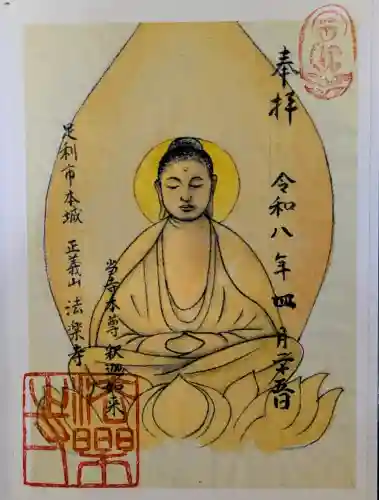 奉拝
令和八年四月二十五日
当寺本尊 釈迦如来
足利市本城 正義山 法楽寺